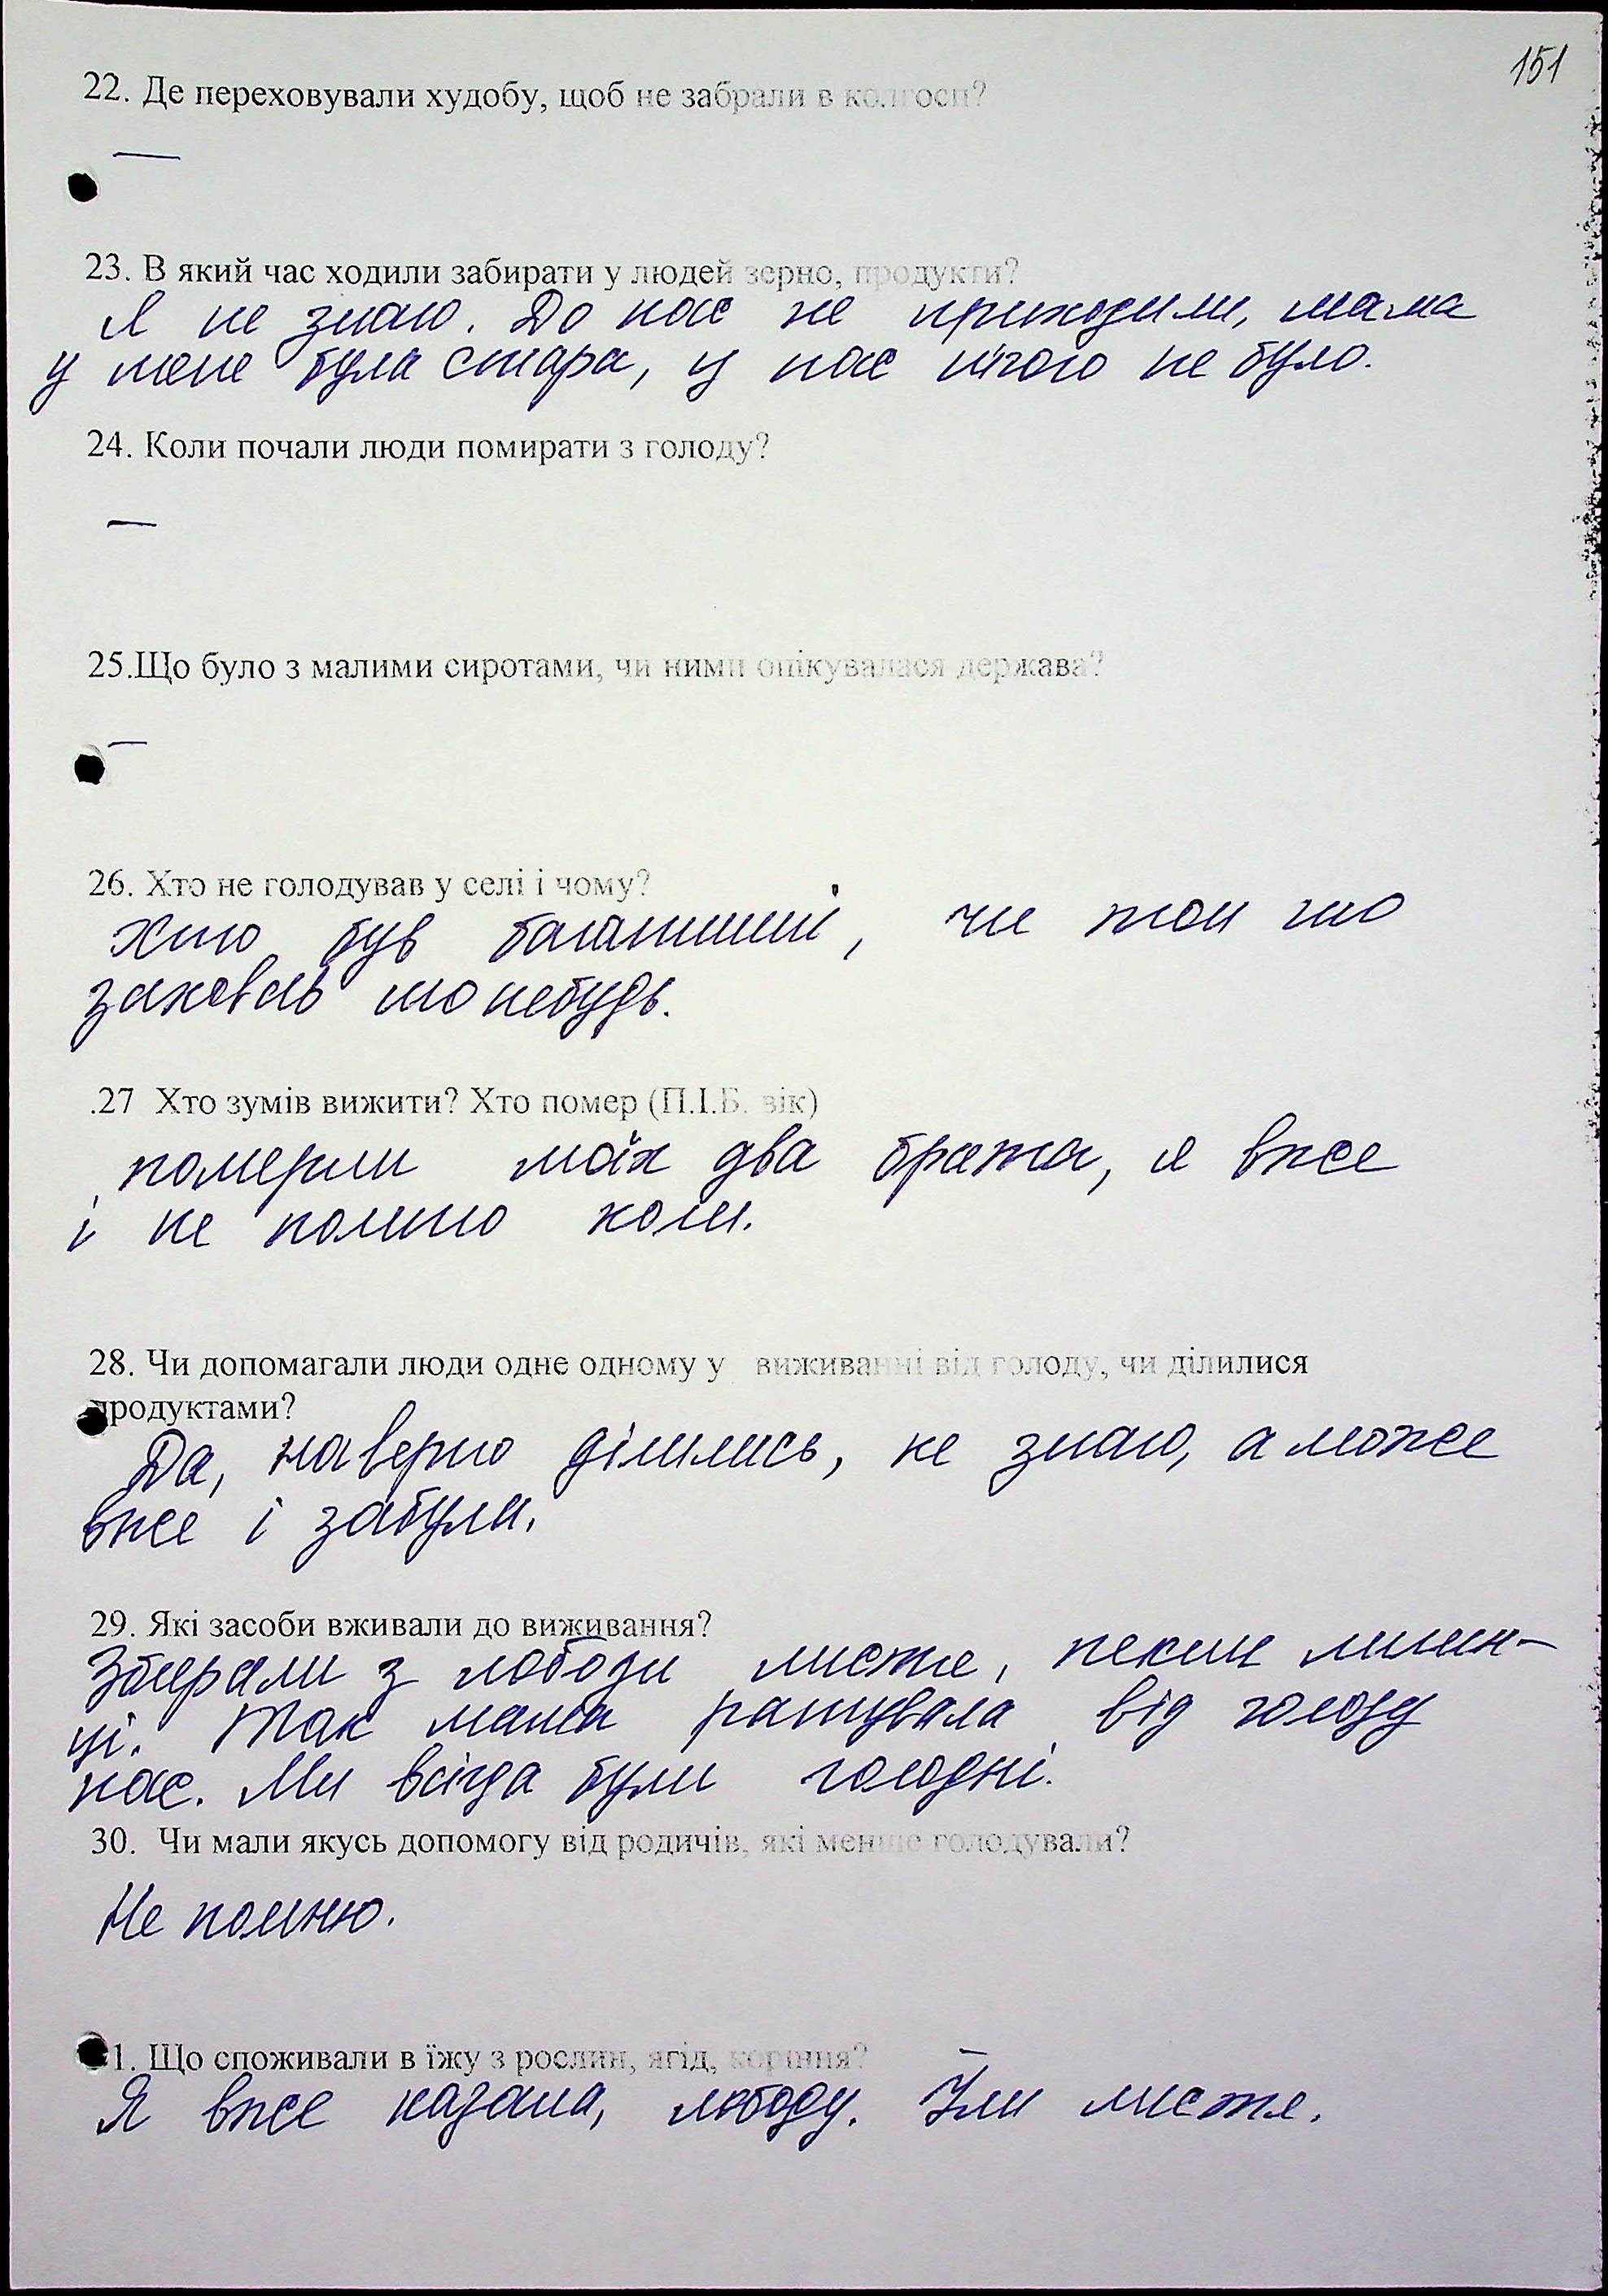 151
22. Де переховували худобу, щоб не забрали в колгосп?
—
23. В який час ходили забирати у людей зерно, продукти?
Я не знаю. До нас не приходили, мама
у мене була стара, у нас нічого не було.
24. Коли почали люди помирати з голоду?
—
25.Що було з малими сиротами, чи ними опікувалася держава?
—
26. Хто не голодував у селі і чому?
Хто був багатший, чи той шо
заховав шонебудь.
.27 Хто зумів вижити? Хто помер (П.І.Б. вік)
померли моїх два брата, я вже
і не помню коли.
28. Чи допомагали люди одне одному у виживанні від голоду, чи ділилися
продуктами?
Да, наверно ділились, не знаю, а може
вже і забула.
29. Які засоби вживали до виживання?
Збирали з лободи листя, пекли млин-
ці. Так мама рятувала від голоду
нас. Ми всігда були голодні.
30. Чи мали якусь допомогу від родичів, які менше голодували?
Не помню.
1. Що споживали в їжу з рослин, ягід, коріння?
Я вже казала, лободу. Їли листя.